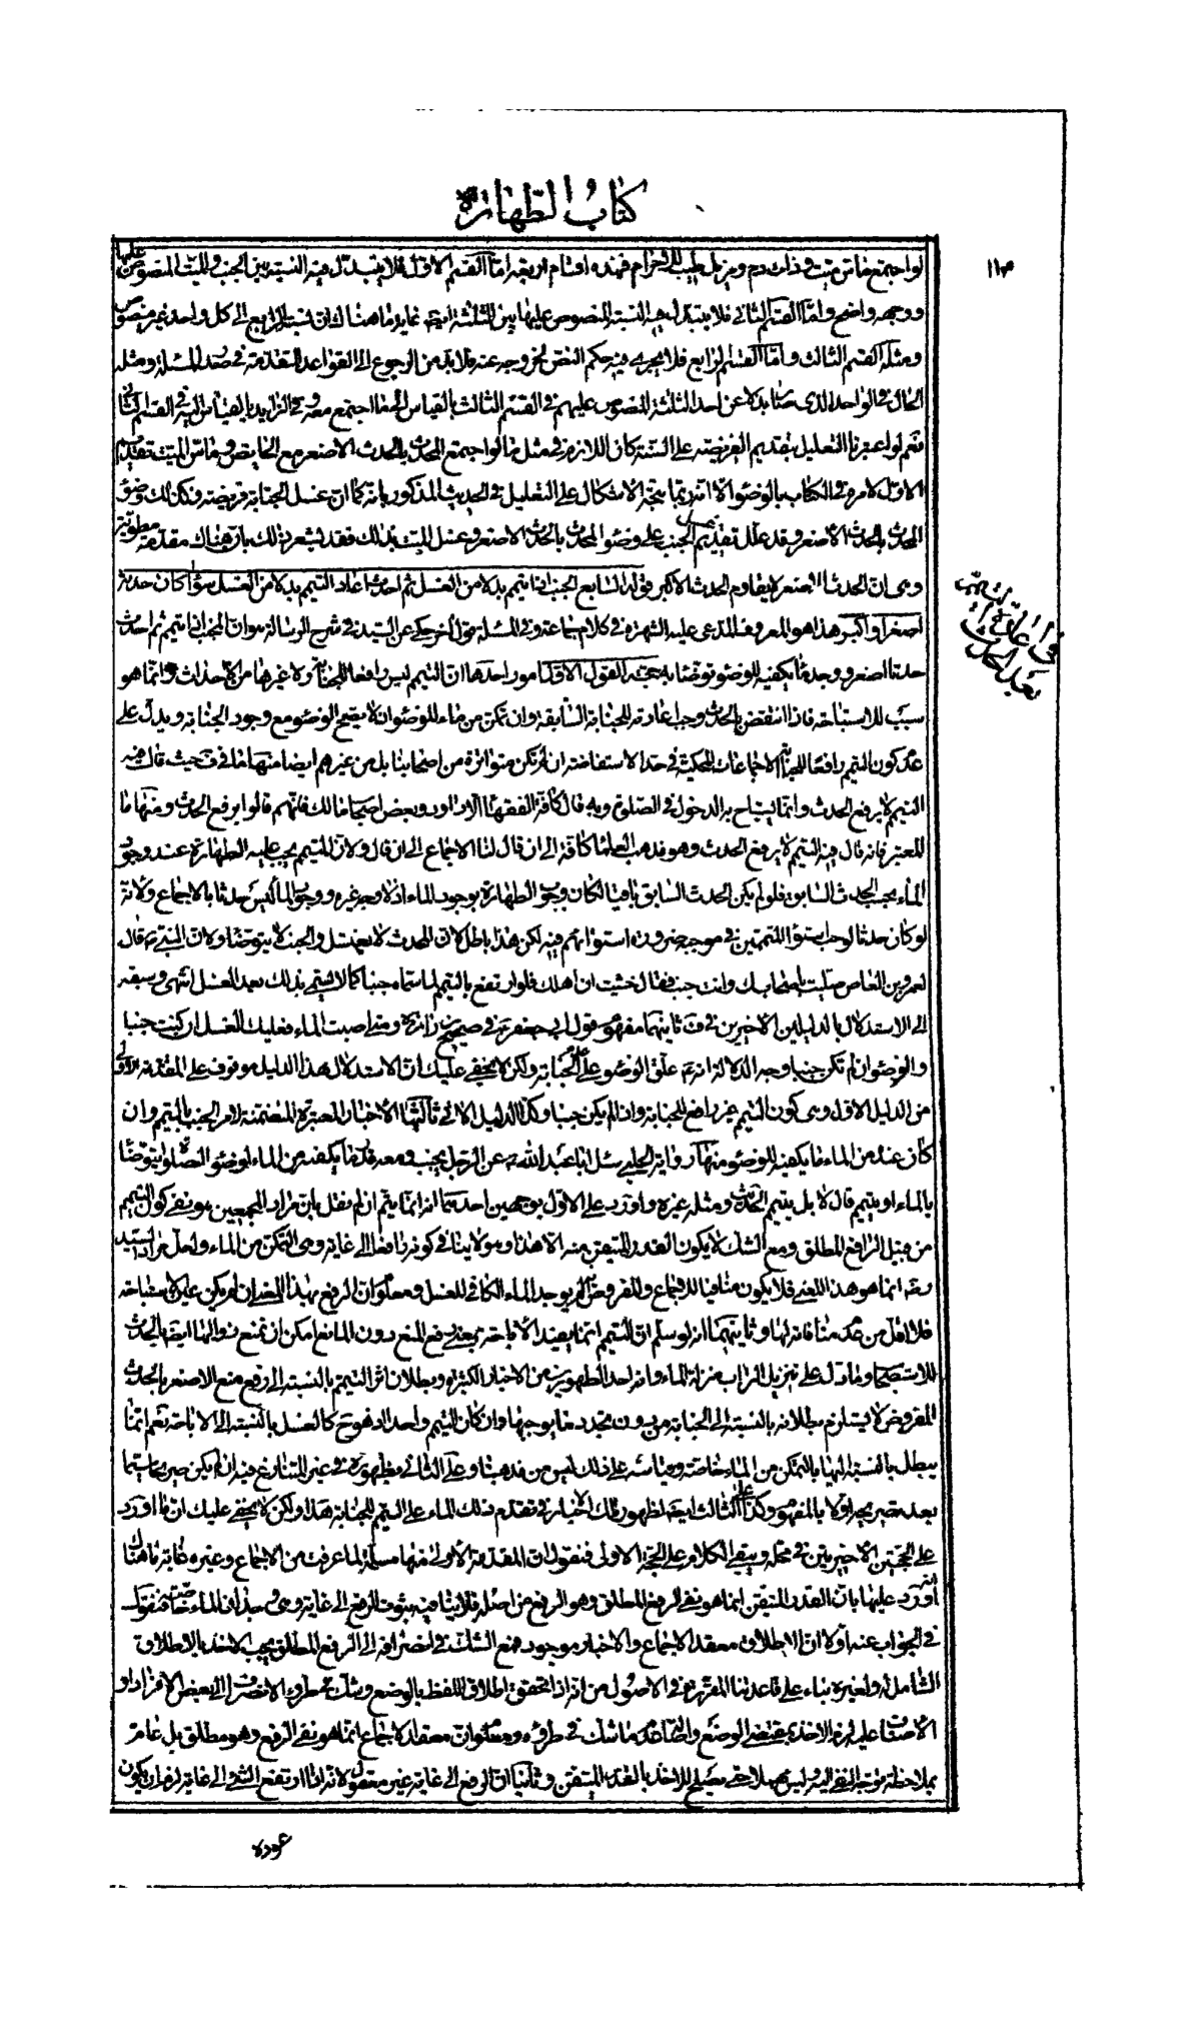 كتاب الطهارة
١١٣
لو اجتمع ماس ميت وذات دم ومزيل طيب للاحرام فهذه اقسام اربعة اما القسم الاول فلا يتبدل فيه النسبة بين الجنب والميت المنصوص عليها
ووجهه واضح واما القسم الثاني فلا يتبدل فيه النسبة المنصوص عليها بين الثلثة ايضا غاية ما هناك ان نسبة الرابع الى كل واحد غير منصوص
ومثله القسم الثالث واما القسم الرابع فلا يجري فيه حكم النص لخروجه عنه فلا بد من الرجوع الى القواعد المتقدمة في صدر المسئلة ومثله
الحال في الواحد الذي صار بدلا عن احد الثلثة المنصوص عليهم في القسم الثالث بالقياس الى ما اجتمع معه وفي الزايد بالقياس اليه في القسم الثاني
نعم لو اعتبرنا التعليل بتقديم الفريضة على السنة كان اللازم في مثل ما لو اجتمع المحدث بالحدث الاصغر مع الحايض وماس الميت تقديم
الاول لامره في الكتاب بالوضوء الا انه ربما يتجه الاشكال على التعليل في الحديث المذكور بانه كما ان غسل الجنابة فريضة فكذلك وضوء
المحدث بالحدث الاصغر وقد علل تقديم الجنب على وضوء المحدث بالحدث الاصغر وغسل الميت بذلك فقد يشعر ذلك بان هناك مقدمة مطوية
وهي ان الحدث الاصغر لا يقاوم الحدث الاكبر قوله السابع الجنب اذا تيمم بدلا من الغسل ثم احدث اعاد التيمم بدلا من الغسل سواء كان حدثه
اصغر او اكبر هذا هو المعروف المدعى عليه الشهرة في كلام جماعة وفي المسئلة قول اخر حكي عن السيد في شرح الرسالة هو ان المجنب اذا تيمم ثم احدث
حدثا اصغر ووجد ما يكفيه للوضوء توضأ به حجة القول الاول امور احدها ان التيمم ليس رافعا للجنابة ولا غيرها من الاحداث وانما هو
سبب للاستباحة فاذا انتقض بالحدث وجب اعادته للجنابة السابقة وان تمكن من ماء للوضوء لا يصح الوضوء مع وجود الجنابة ويدل على
عدم كون التيمم رافعا للجنابة الاجماعات المحكية في حد الاستفاضة ان لم تكن متواترة من اصحابنا بل من غيرهم ايضا منها ما في ف حيث قال فيه
التيمم لا يرفع الحدث وانما يستباح به الدخول في الصلوة وبه قال كافة الفقهاء الا داود وبعض اصحاب مالك فانهم قالوا يرفع الحدث ومنها ما
المعتبر فانه قال فيه التيمم لا يرفع الحدث وهو مذهب العلماء كافة الى ان قال لنا الاجماع الى ان قال ولان المتيمم يجب عليه الطهارة عند وجود
الماء بحسب الحدث السابق فلو لم يكن الحدث السابق باقيا لكان وجوب الطهارة بوجود الماء اذ لا وجه غيره ووجود الماء ليس حدثا بالاجماع ولانه
لو كان حدثا لوجب استواء المتيممين في موجبه ضرورة استوائهم فيه لكن هذا باطل لان المحدث لا يغتسل والجنب لا يتوضأ ولان النبي ص قال
لعمرو بن العاص صليت باصحابك وانت جنب فقال خشيت ان اهلك فلو ارتفع بالتيمم لما سماه جنبا كما لا يسمى بذلك بعد الغسل انتهى وسبقه
الى الاستدلال بالدليلين الاخيرين في ف ثانيهما مفهوم قول ابي جعفر ع في صحيح زرارة ومتى اصبت الماء فعليك الغسل ان كنت جنبا
والوضوء ان لم تكن جنبا وجه الدلالة انه ع علق الوضوء على عدم الجنابة ولكن لا يخفى عليك ان الاستدلال بهذا الدليل موقوف على المقدمة الاولى
من الدليل الاول وهي كون التيمم غير رافع للجنابة والا لم يكن جنبا وكذا الدليل الاتي ثالثها الاخبار المعتبرة المتضمنة لامر الجنب بالتيمم وان
كان عنده من الماء ما يكفيه للوضوء منها رواية الحلبي سئل ابا عبد الله ع عن الرجل يجنب ومعه قدر ما يكفيه من الماء لوضوء الصلوة ايتوضأ
بالماء او يتيمم قال لا بل يتيمم الحديث ومثله غيره واورد على الاول بوجهين احدهما انه انما يتم ان لم نقل بان مراد المجمعين هو نفي كون التيمم
من قبيل الرافع المطلق ومع الشك لا يكون القدر المتيقن منه الا هذا وهو لا ينافي كونه رافعا الى غاية وهي التمكن من الماء ولعل مراد السيد
ره انما هو هذا المعنى فلا يكون منافيا للاجماع والمفروض انه لم يوجد الماء الكافي للغسل ومعلوم ان الرفع بهذا المعنى ان لم يكن عين الاستباحة
فلا اقل من عدم منافاته لها وثانيهما انه لو سلم ان التيمم انما يفيد الاباحة بمعنى رفع المنع دون المانع امكن ان نمنع زوالها ايضا بالحدث
للاستصحاب وما دل على تنزيل التراب منزلة الماء وانه احد الطهورين من الاخبار الكثيرة وبطلان اثر التيمم بالنسبة الى رفع منع الاصغر بالحدث
المفروض لا يستلزم بطلانه بالنسبة الى الجنابة من دون تجدد ما يوجبها وان كان التيمم واحدا اذ هو ح كالغسل بالنسبة الى الاباحة نعم انما
يبطل بالنسبة اليها بالتمكن من الماء خاصة وقياسه على ذلك ليس من مذهبنا وعلى الثاني بظهوره في غير المتنازع فيه ان لم يكن صريحا سيما
بعد تصريحه اولا بالمفهوم وكذا على الثالث ايضا لظهور تلك الاخبار في تقدم ذلك الماء على التيمم للجنابة هذا ولكن لا يخفى عليك ان ما اورد
على الحجتين الاخيرتين في محله ويبقى الكلام على الحجة الاولى فنقول ان المقدمة الاولى منها مسلمة لما عرفت من الاجماع وغيره غاية ما هناك
انه اورد عليها بان القدر المتيقن انما هو نفي الرفع المطلق وهو الرفع من اصله فلا ينافيه ثبوت الرفع الى غاية وهي وجدان الماء خاصة فنقول
في الجواب عنه اولا ان الاطلاق معقد الاجماع والاخبار موجود فمع الشك في انصرافه الى الرفع المطلق يجب الاخذ بالاطلاق
الشامل له ولغيره بناء على قاعدتنا المقررة في الاصول من انه اذا تحقق اطلاق اللفظ بالوضع وشك في طروء الانصراف الى بعض الافراد او
الاقتصار عليه لزم الاخذ بمقتضى الوضع واصالة عدم ما شك في طروه ومعلوم ان معقد الاجماع انما هو نفي الرفع وهو مطلق بل عام
بملاحظة توجه النفي اليه وليس مهملا حتى يصلح للاخذ بالقدر المتيقن وثانيا ان الرفع الى غاية غير معقول لانه اذا ارتفع الشيء الى غاية لزم ان يكون
عوده